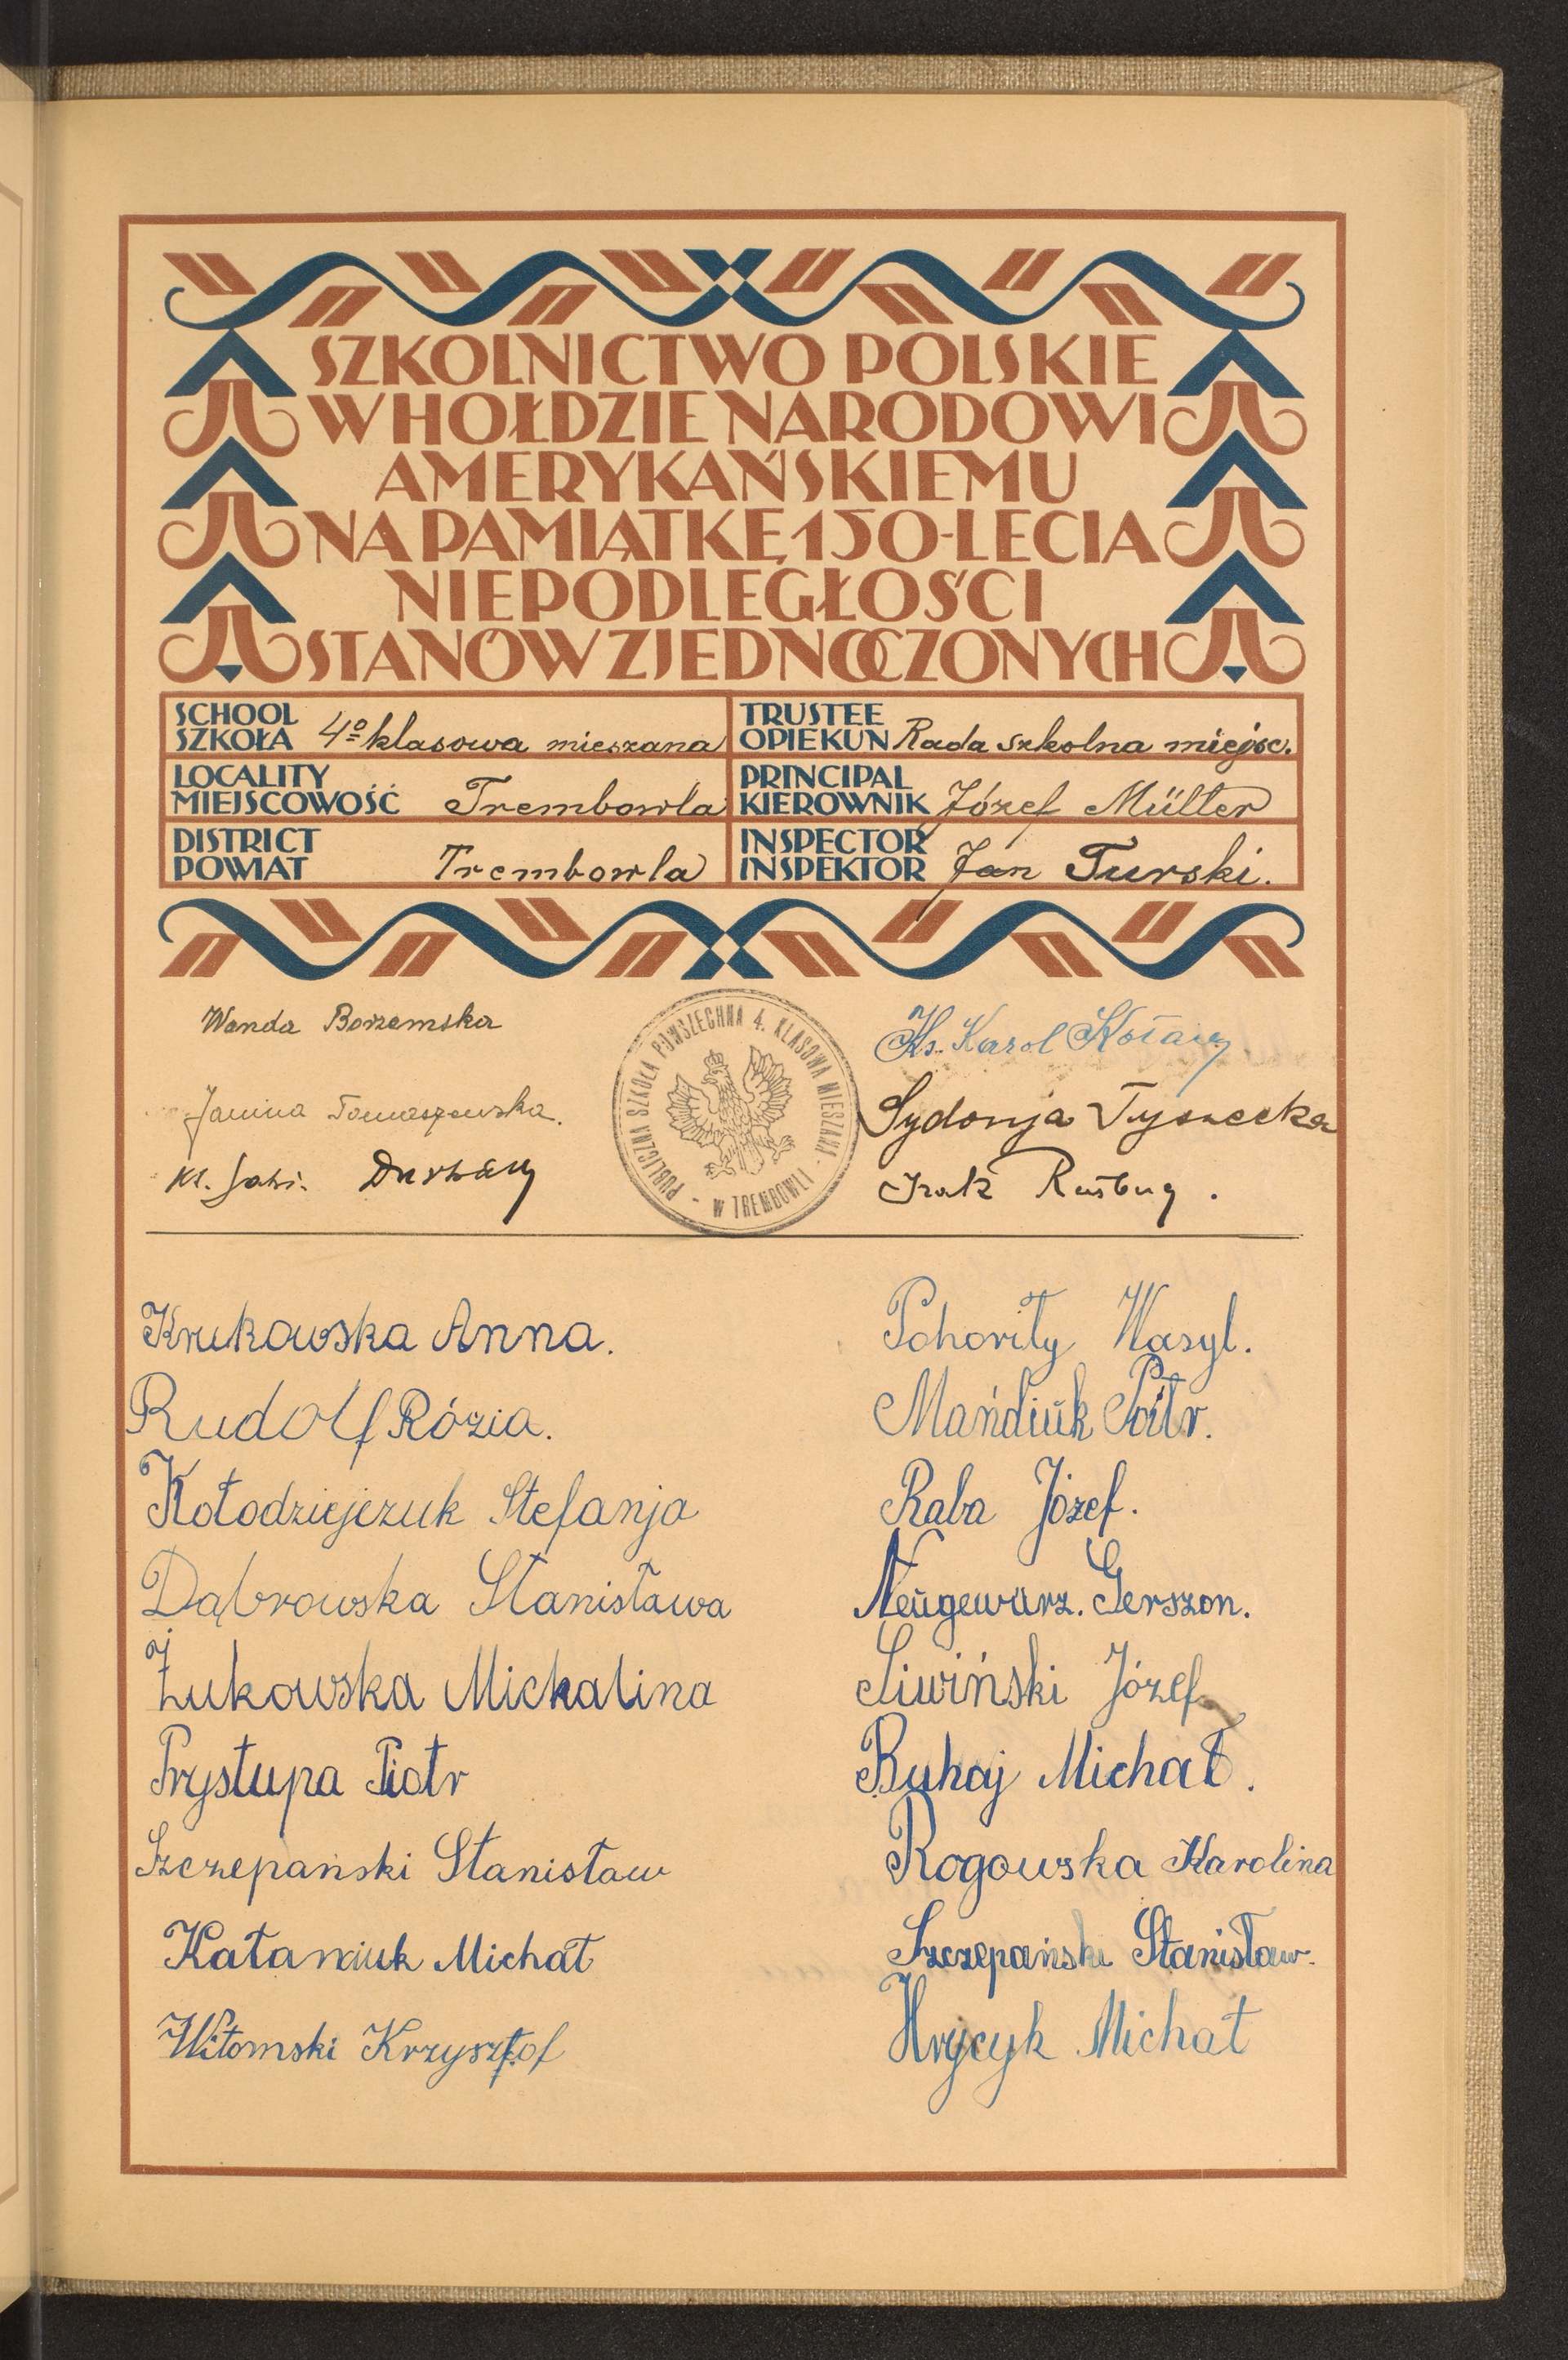 SZKOLNICTWO POLSKIE
W HOŁDZIE NARODOWI
AMERYKAŃSKIEMU
NA PAMIĄTKĘ 150-LECIA
NIEPODLEGŁOŚCI
STANÓW ZJEDNOCZONYCH
SCHOOL
SZKOŁA 4º klasowa mieszana
TRUSTEE
OPIEKUN Rada szkolna miejsc.
LOCALITY
MIEJSCOWOŚĆ Trembowla
PRINCIPAL
KIEROWNIK Józef Müller
DISTRICT
POWIAT Trembowla
INSPECTOR
INSPEKTOR Jan Turski.
Wanda Borzemska
Janina Tomaszewska.
PUBLICZNA SZKOŁA POWSZECHNA 4. KLASOWA MIESZANA
W TREMBOWLI
Ks. Karol
Sydonja Tyszecka
Krukowska Anna.
Rudolf Rózia.
Kołodziejczuk Stefanja
Dąbrowska Stanisława
Żukowska Michalina
Prystupa Piotr
Szczepański Stanisław
Kataniuk Michał
Witomski Krzysztof
Pohoriły Wasyl.
Mańdiuk Piotr.
Raba Józef.
Neugewurz. Gerszon.
Siwiński Józef
Buhaj Michał.
Rogowska Karolina
Szczepański Stanisław.
Hrycyk Michał